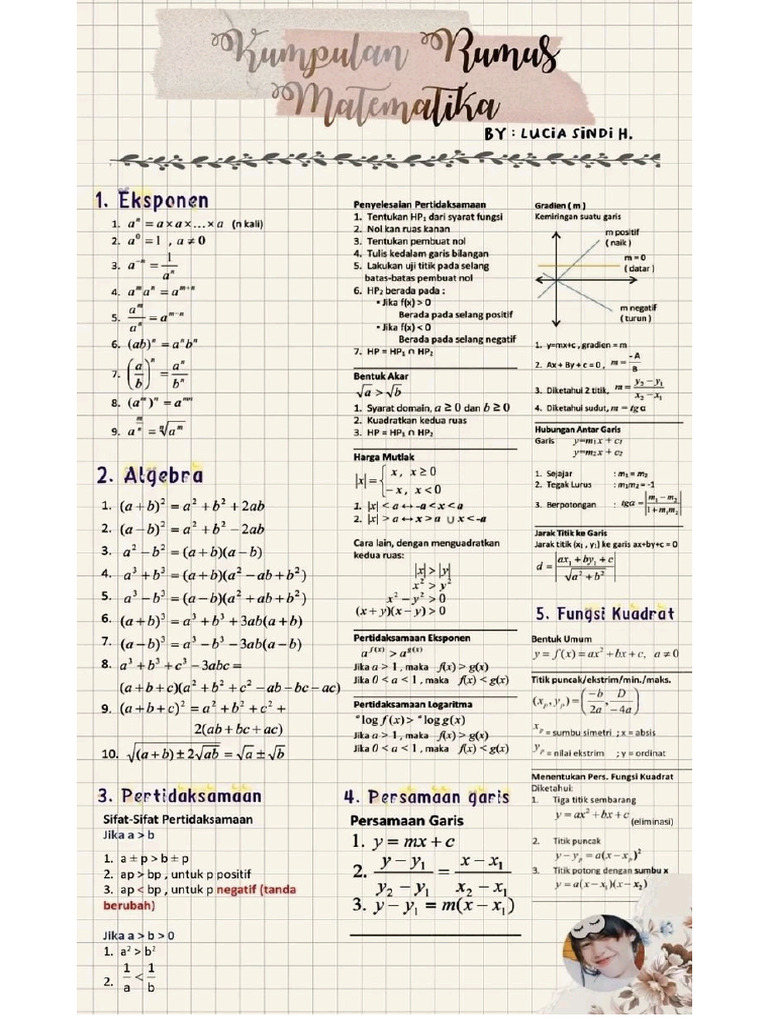 Kumpulan Rumus
Matematika
BY : LUCIA SINDI H.
1. Eksponen
1. aⁿ = a × a × ... × a (n kali)
2. a⁰ = 1 , a ≠ 0
3. a⁻ⁿ = 1/aⁿ
4. aᵐaⁿ = aᵐ⁺ⁿ
5. aᵐ/aⁿ = aᵐ⁻ⁿ
6. (ab)ⁿ = aⁿbⁿ
7. (a/b)ⁿ = aⁿ/bⁿ
8. (aᵐ)ⁿ = aᵐⁿ
9. a^(m/n) = ⁿ√aᵐ
2. Algebra
1. (a+b)² = a² + b² + 2ab
2. (a−b)² = a² + b² − 2ab
3. a² − b² = (a+b)(a−b)
4. a³ + b³ = (a+b)(a² − ab + b²)
5. a³ − b³ = (a−b)(a² + ab + b²)
6. (a+b)³ = a³ + b³ + 3ab(a+b)
7. (a−b)³ = a³ − b³ − 3ab(a−b)
8. a³ + b³ + c³ − 3abc =
(a+b+c)(a² + b² + c² − ab − bc − ac)
9. (a+b+c)² = a² + b² + c² +
2(ab + bc + ac)
10. √((a+b) ± 2√ab) = √a ± √b
3. Pertidaksamaan
Sifat-Sifat Pertidaksamaan
Jika a > b
1. a ± p > b ± p
2. ap > bp , untuk p positif
3. ap < bp , untuk p negatif (tanda
berubah)
Jika a > b > 0
1. a² > b²
2. 1/a < 1/b
Penyelesaian Pertidaksamaan
1. Tentukan HP₁ dari syarat fungsi
2. Nol kan ruas kanan
3. Tentukan pembuat nol
4. Tulis kedalam garis bilangan
5. Lakukan uji titik pada selang
batas-batas pembuat nol
6. HP₂ berada pada :
• Jika f(x) > 0
Berada pada selang positif
• Jika f(x) < 0
Berada pada selang negatif
7. HP = HP₁ ∩ HP₂
Bentuk Akar
√a > √b
1. Syarat domain, a ≥ 0 dan b ≥ 0
2. Kuadratkan kedua ruas
3. HP = HP₁ ∩ HP₂
Harga Mutlak
|x| = { x , x ≥ 0
− x , x < 0
1. |x| < a ↔ -a < x < a
2. |x| > a ↔ x > a ∪ x < -a
Cara lain, dengan menguadratkan
kedua ruas:
|x| > |y|
x² > y²
x² − y² > 0
(x + y)(x − y) > 0
Pertidaksamaan Eksponen
a^f(x) > a^g(x)
Jika a > 1 , maka f(x) > g(x)
Jika 0 < a < 1 , maka f(x) < g(x)
Pertidaksamaan Logaritma
ᵃlog f(x) > ᵃlog g(x)
Jika a > 1 , maka f(x) > g(x)
Jika 0 < a < 1 , maka f(x) < g(x)
4. Persamaan garis
Persamaan Garis
1. y = mx + c
2. (y − y₁)/(y₂ − y₁) = (x − x₁)/(x₂ − x₁)
3. y − y₁ = m(x − x₁)
Gradien ( m )
Kemiringan suatu garis
m positif
( naik )
m = 0
( datar )
m negatif
( turun )
1. y=mx+c , gradien = m
2. Ax + By + c = 0 , m = -A/B
3. Diketahui 2 titik, m = (y₂ − y₁)/(x₂ − x₁)
4. Diketahui sudut, m = tg α
Hubungan Antar Garis
Garis y=m₁x + c₁
y=m₂x + c₂
1. Sejajar : m₁ = m₂
2. Tegak Lurus : m₁m₂ = -1
3. Berpotongan : tgα = |(m₁ − m₂)/(1 + m₁m₂)|
Jarak Titik ke Garis
Jarak titik (x₁ , y₁) ke garis ax+by+c = 0
d = |(ax₁ + by₁ + c)/√(a² + b²)|
5. Fungsi Kuadrat
Bentuk Umum
y = f(x) = ax² + bx + c, a ≠ 0
Titik puncak/ekstrim/min./maks.
(xₚ, yₚ) = (−b/2a, D/−4a)
xₚ = sumbu simetri ; x = absis
yₚ = nilai ekstrim ; y = ordinat
Menentukan Pers. Fungsi Kuadrat
Diketahui:
1. Tiga titik sembarang
y = ax² + bx + c (eliminasi)
2. Titik puncak
y − yₚ = a(x − xₚ)²
3. Titik potong dengan sumbu x
y = a(x − x₁)(x − x₂)